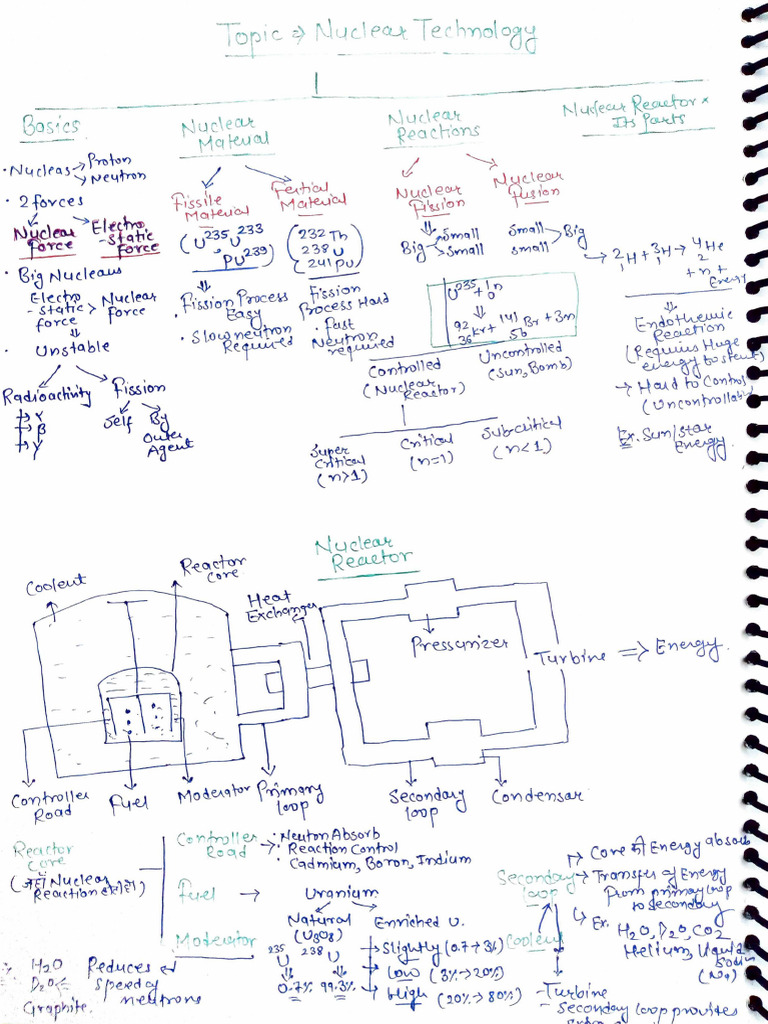 Topic ⇒ Nuclear Technology
Basics
• Nucleas → Proton
→ Neutron
• 2 forces
Nuclear Force
Electro-static Force
• Big Nucleus
Electro-static force > Nuclear force
⇓
• Unstable
Radioactivity
→ α
→ β
→ γ
Fission
Self
By Outer Agent
Nuclear Material
Fissile Material
(U235, U233
, PU239)
⇓
• Fission Process Easy
• Slow neutron Required
Fertial Material
(232 Th
238 U
241 PU)
Fission Process Hard
• Fast Neutron required
Nuclear Reactions
Nuclear Fission
⇓
Big → Small
→ Small
U235 + 1 0 n
⇓
92 36 Kr + 141 56 Br + 3n
Controlled
(Nuclear Reactor)
Uncontrolled
(Sun, Bomb)
Super Critical
(n>1)
Critical
(n=1)
Subcritical
(n<1)
Nuclear Fusion
Small
small > Big
→ 2 1 H + 3 1 H → 4 2 He
+ n +
Energy
⇓
Endothemic Reaction
(Requires Huge energy to start)
→ Hard to Control
(Uncontrollable
Ex. Sun/Star Energy.
Nuclear Reactor & Its Parts
Nuclear Reactor
Coolent
Reactor Core
Heat Exchanger
Pressurizer
Turbine ⇒ Energy.
Controller Road
Fuel
Moderator
Primary loop
Secondary loop
Condensar
Reactor Core
(जहाँ Nuclear Reaction होती है)
Controller Road →
• Neuton Absorb
• Reaction Control
• Cadmium, Boron, Indium
Fuel → Uranium
Natural
(U3O8)
235 U 238 U
⇓ ⇓
0.7% 99.3%
Enriched U.
→ Slightly (0.7→3%)
→ Low (3%→20%)
→ High (20%→80%)
Moderator
H2O
D2O
Graphite.
Reduces speed of neutrons
Coolent
→ Core की Energy absorb
Secondary loop → Transfer of Energy
from primary loop
to secondary
Ex. H2O, D2O, CO2
Helium, Liquid
Sodium
(Na)
- Turbine
- Secondary loop provides